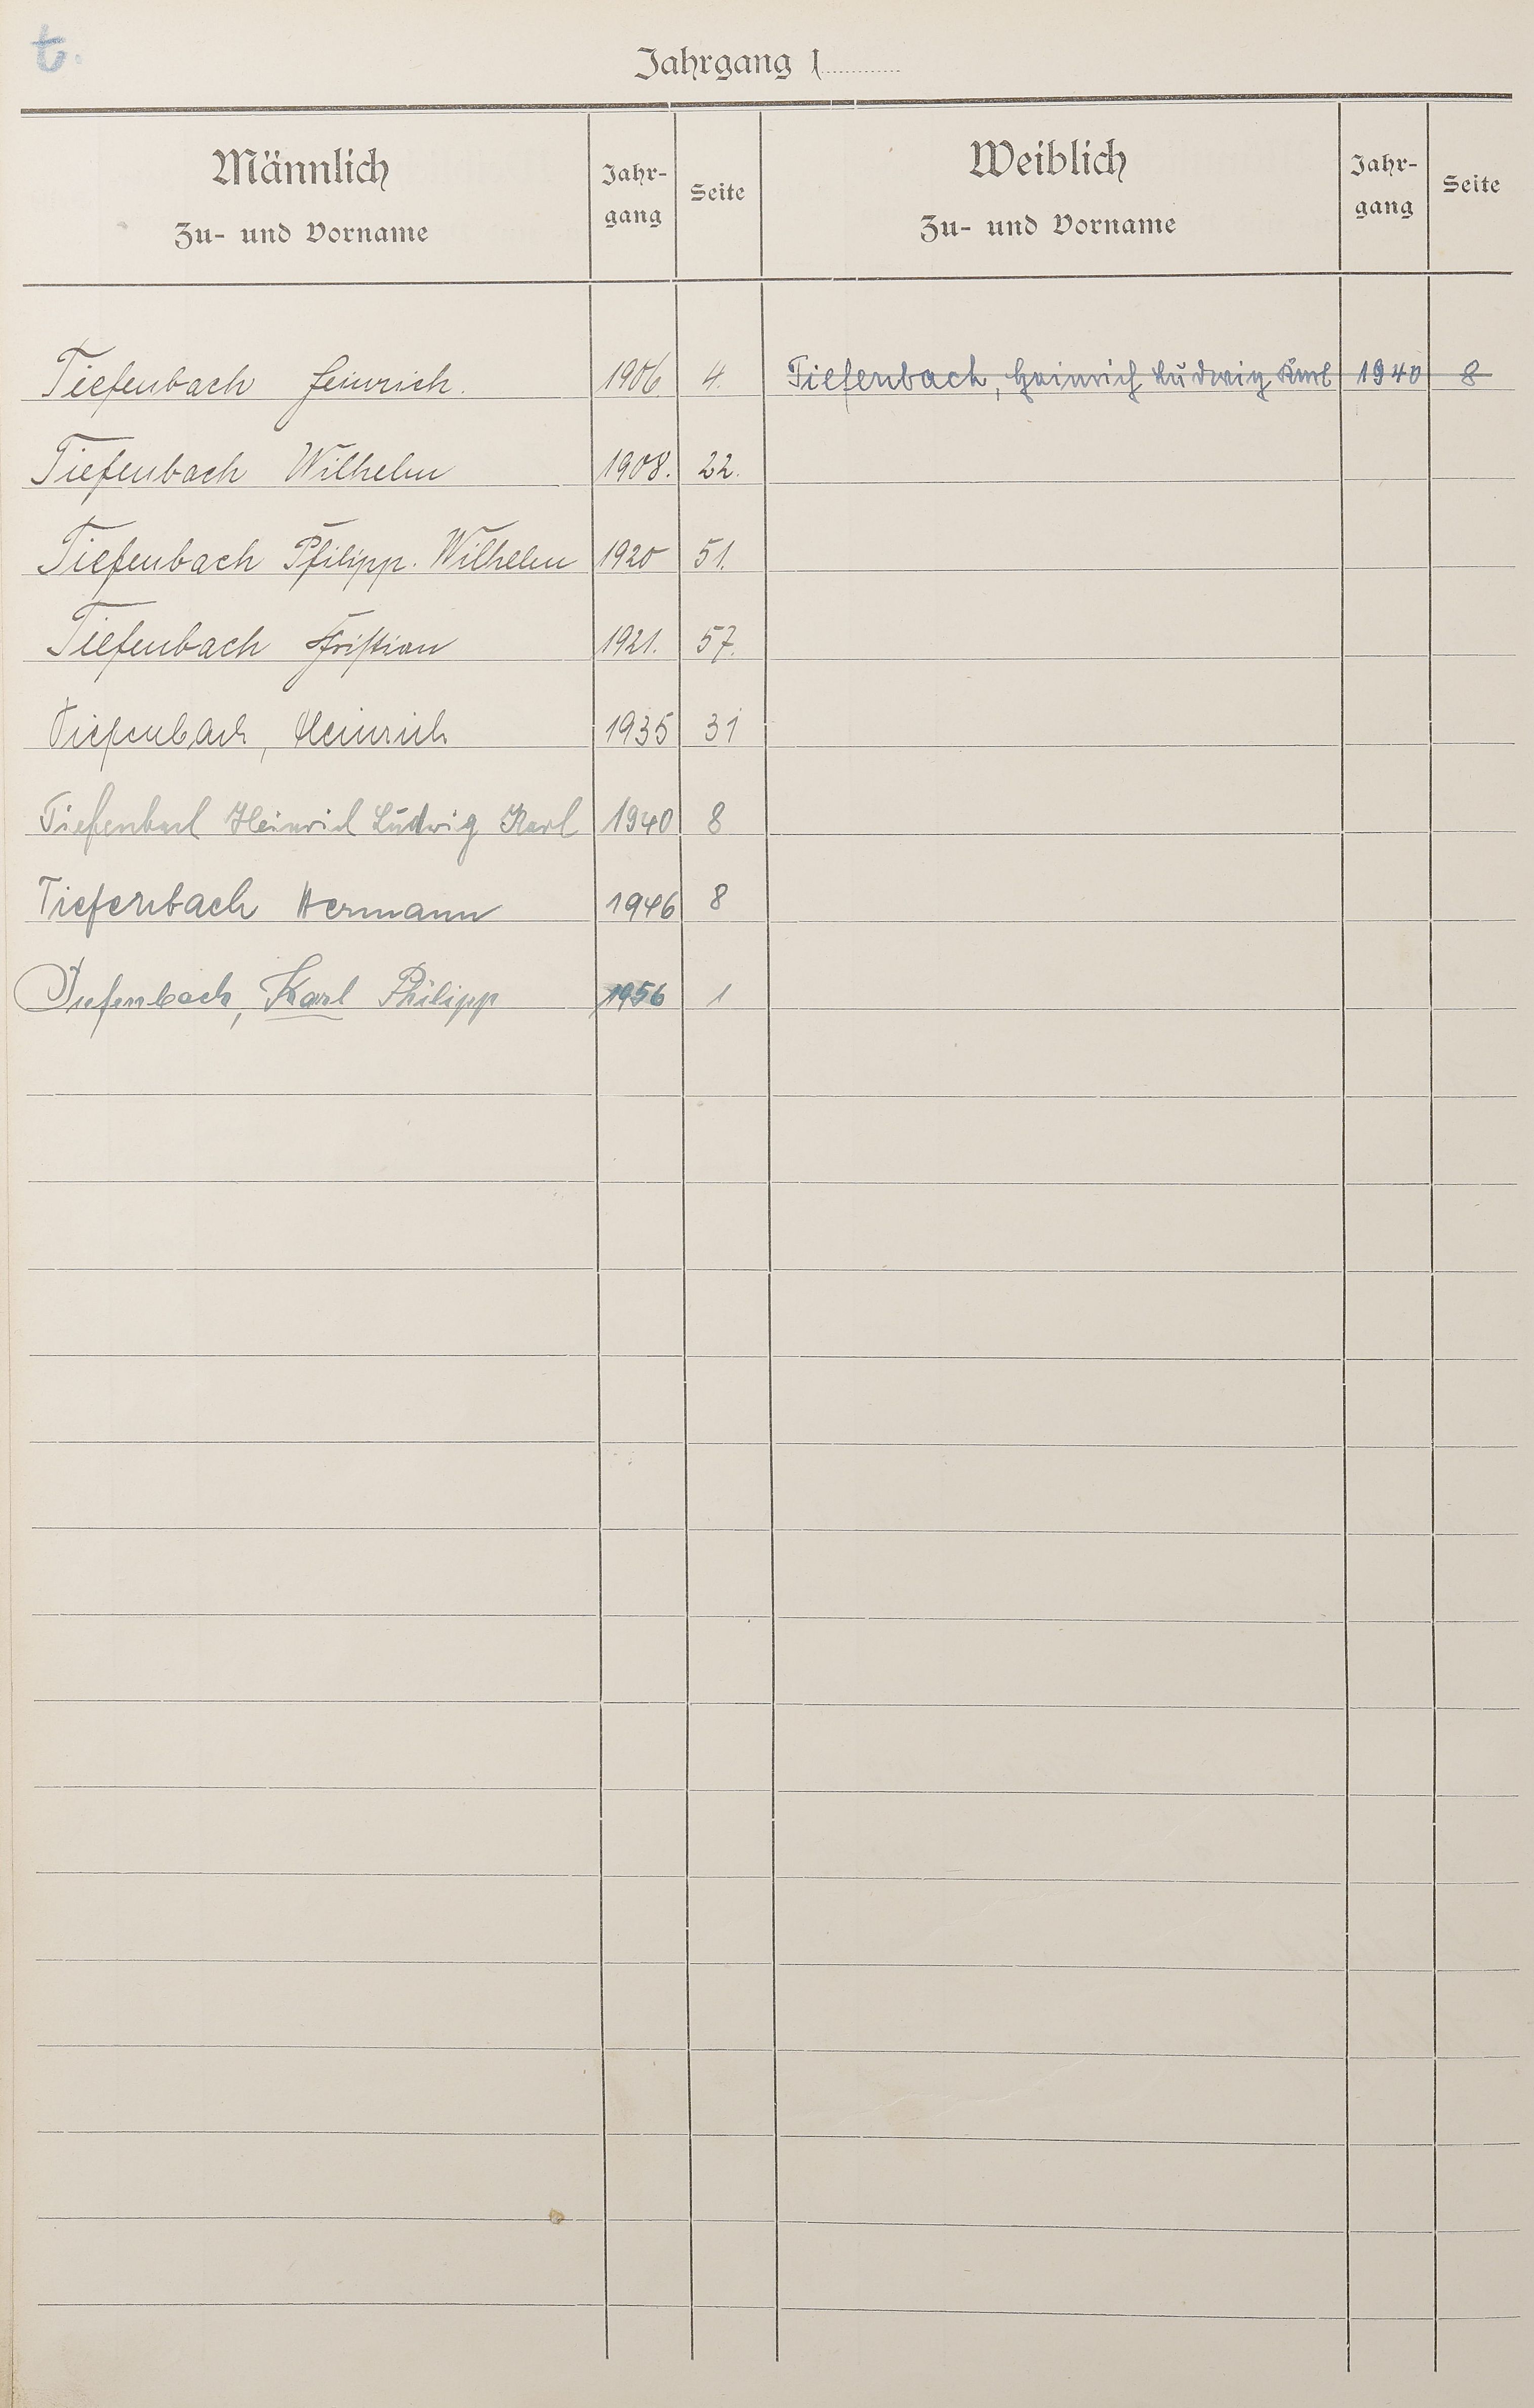 t.
Jahrgang 1
Männlich
Zu- und Vorname
Jahr-
gang
Seite
Weiblich
Zu- und Vorname
Jahr-
gang
Seite
Tiefenbach Heinrich. 1906. 4. Tiefenbach, Heinrich Ludwig Karl 1940 8
Tiefenbach Wilhelm 1908. 22.
Tiefenbach Philipp. Wilhelm 1920 51.
Tiefenbach Christian 1921. 57.
Tiefenbach, Heinrich 1935 31
Tiefenbach Heinrich Ludwig Karl 1940 8
Tiefenbach Hermann 1946 8
Tiefenbach, Karl Philipp 1956 1